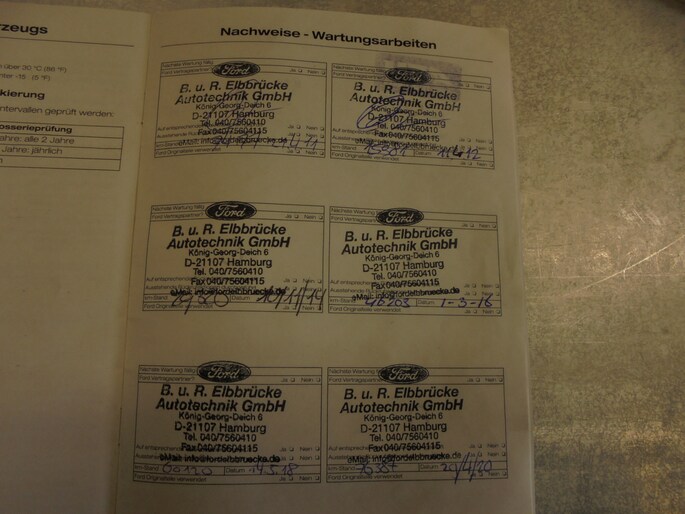 rzeugs
e über 30 °C (86 °F)
nter -15 (5 °F)
kierung
ntervallen geprüft werden
osserieprüfung
ahre: alle 2 Jahre
Jahre: jährlich
Nachweise - Wartungsarbeiten
Nächste Wartung fällig
Ford Vertragspartner
Ja Nein
Ford
B. u. R. Elbbrücke
Autotechnik GmbH
König-Georg-Deich 6
D-21107 Hamburg
Tel. 040/7560410
Fax 040/75604115
eMail: info@fordelbbruecke.de
Ford Originalteile verwendet
Ja Nein
Ford
B. u. R. Elbbrücke
Autotechnik GmbH
König-Georg-Deich 6
D-21107 Hamburg
Tel. 040/7560410
Fax 040/75604115
eMail: info@fordelbbruecke.de
km-Stand Datum
Ford Originalteile verwendet
Nächste Wartung fällig
Ford Vertragspartner
Ja Nein
Ford
B. u. R. Elbbrücke
Autotechnik GmbH
König-Georg-Deich 6
D-21107 Hamburg
Tel. 040/7560410
Fax 040/75604115
eMail: info@fordelbbruecke.de
km-Stand Datum 10/11/14
Ford Originalteile verwendet
Nächste Wartung fällig
Ford Vertragspartner
Ja Nein
Ford
B. u. R. Elbbrücke
Autotechnik GmbH
König-Georg-Deich 6
D-21107 Hamburg
Tel. 040/7560410
Fax 040/75604115
eMail: info@fordelbbruecke.de
km-Stand 46203 Datum 1-3-16
Ford Originalteile verwendet
Nächste Wartung fällig
Ford Vertragspartner
Ja Nein
Ford
B. u. R. Elbbrücke
Autotechnik GmbH
König-Georg-Deich 6
D-21107 Hamburg
Tel. 040/7560410
Fax 040/75604115
eMail: info@fordelbbruecke.de
km-Stand 60120 Datum 14.5.18
Ford Originalteile verwendet
Nächste Wartung fällig
Ford Vertragspartner
Ja Nein
Ford
B. u. R. Elbbrücke
Autotechnik GmbH
König-Georg-Deich 6
D-21107 Hamburg
Tel. 040/7560410
Fax 040/75604115
eMail: info@fordelbbruecke.de
km-Stand Datum 29/4/20
Ford Originalteile verwendet